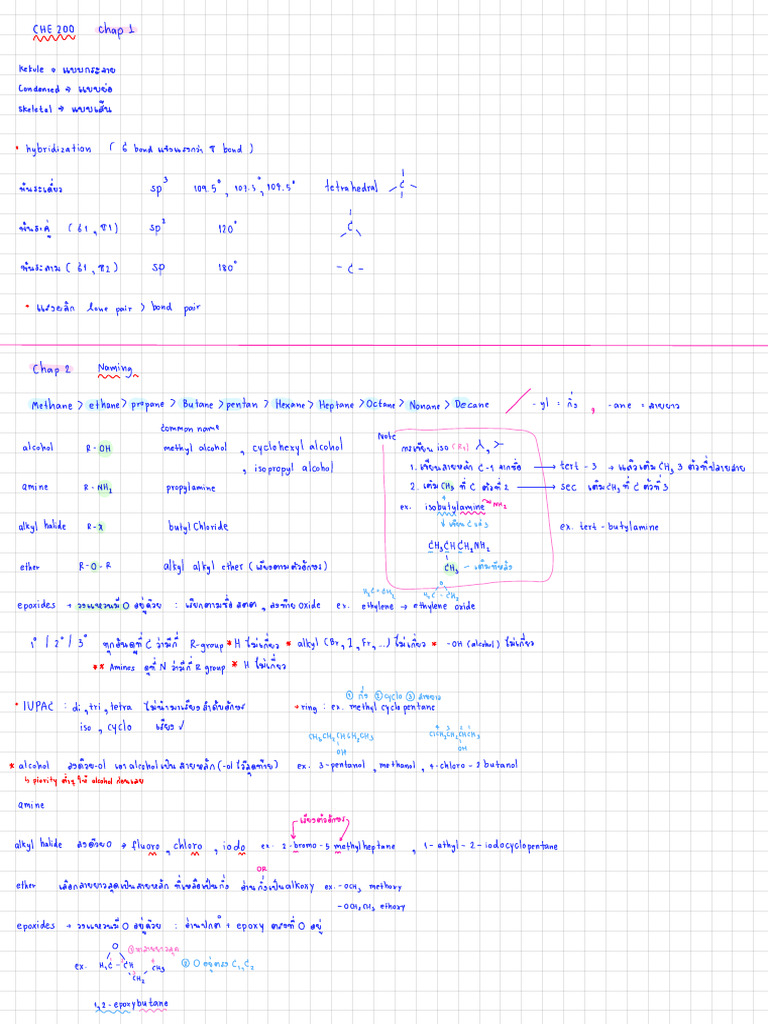 CHE 200 chap 1
Kekule → แบบกระจาย
Condensed → แบบย่อ
Skeletal → แบบเส้น
• hybridization ( б bond แข็งแรงกว่า π bond )
พันธะเดี่ยว sp³ 109.5°, 107.5°, 104.5° tetrahedral C
พันธะคู่ ( б1 , π1) sp² 120° C
พันธะสาม ( б1 , π2) sp 180° - C -
• แรงผลัก lone pair > bond pair
Chap 2 Naming
Methane > ethane > propane > Butane > pentan > Hexane > Heptane > Octane > Nonane > Decane / -yl = กิ่ง , -ane = สายยาว
common name
alcohol R-OH methyl alcohol , cyclohexyl alcohol
, isopropyl alcohol
amine R-NH₂ propylamine
alkyl halide R-X butyl Chloride
ether R-O-R alkyl alkyl ether (เรียงตามตัวอักษร)
Note
การเขียน iso
1. เขียนสายหลัก C-1 จากชื่อ → tert - 3 → แล้วเติม CH₃ 3 ตัวที่ปลายสาย
2. เติม CH₃ ที่ C ตัวที่ 2 → sec เติม CH₃ ที่ C ตัวที่ 3
ex. isobutylamine NH₂
ex. tert-butylamine
CH₃CHCH₂NH₂
CH₃ - เติมทีหลัง
H₂C=CH₂ O H₂C-CH₂
epoxides → วงแหวนมี O อยู่ด้วย : เรียกตามชื่อ , ลงท้าย oxide ex. ethylene → ethylene oxide
1° / 2° / 3° ทุกอันดูที่ C ว่ามีกี่ R-group * H ไม่เกี่ยว * alkyl (Br, I, Fr, ...) ไม่เกี่ยว * -OH (alcohol) ไม่เกี่ยว
** Amines ดูที่ N ว่ามีกี่ R group * H ไม่เกี่ยว
① กิ่ง ② cyclo ③ สายยาว
• IUPAC : di, tri, tetra ไม่นำมาเรียงลำดับอักษร → ring : ex. methyl cyclopentane
iso , cyclo เรียง ✓
CH₃CH₂CHCH₂CH₃
OH
4 3 2 1
ClCH₂CH₂CHCH₃
OH
* alcohol ลงด้วย-ol เอาalcoholเป็นสายหลัก (-olไว้สุดท้าย) ex. 3-pentanol , methanol , 4-chloro-2 butanol
↳ piority ต่ำๆ ให้ alcohol ก่อนเลย
amine
เรียงตัวอักษร
alkyl halide ลงด้วยO → fluoro , chloro , iodo ex. 2-bromo-5 methylheptane , 1-athyl-2-iodocyclopentane
OR
ether เลือกสายยาวสุดเป็นสายหลัก ที่เหลือเป็นกิ่ง อ่านกิ่งเป็นalkoxy ex. -OCH₃ methoxy
-OCH₂CH₃ ethoxy
epoxides → วงแหวนมี O อยู่ด้วย : อ่านปกติ + epoxy ตรงที่ O อยู่
① หาสายยาวสุด
ex. O H₂C-CH CH₂ CH₃ ② O อยู่ตรง C₁,C₂
1,2-epoxybutane